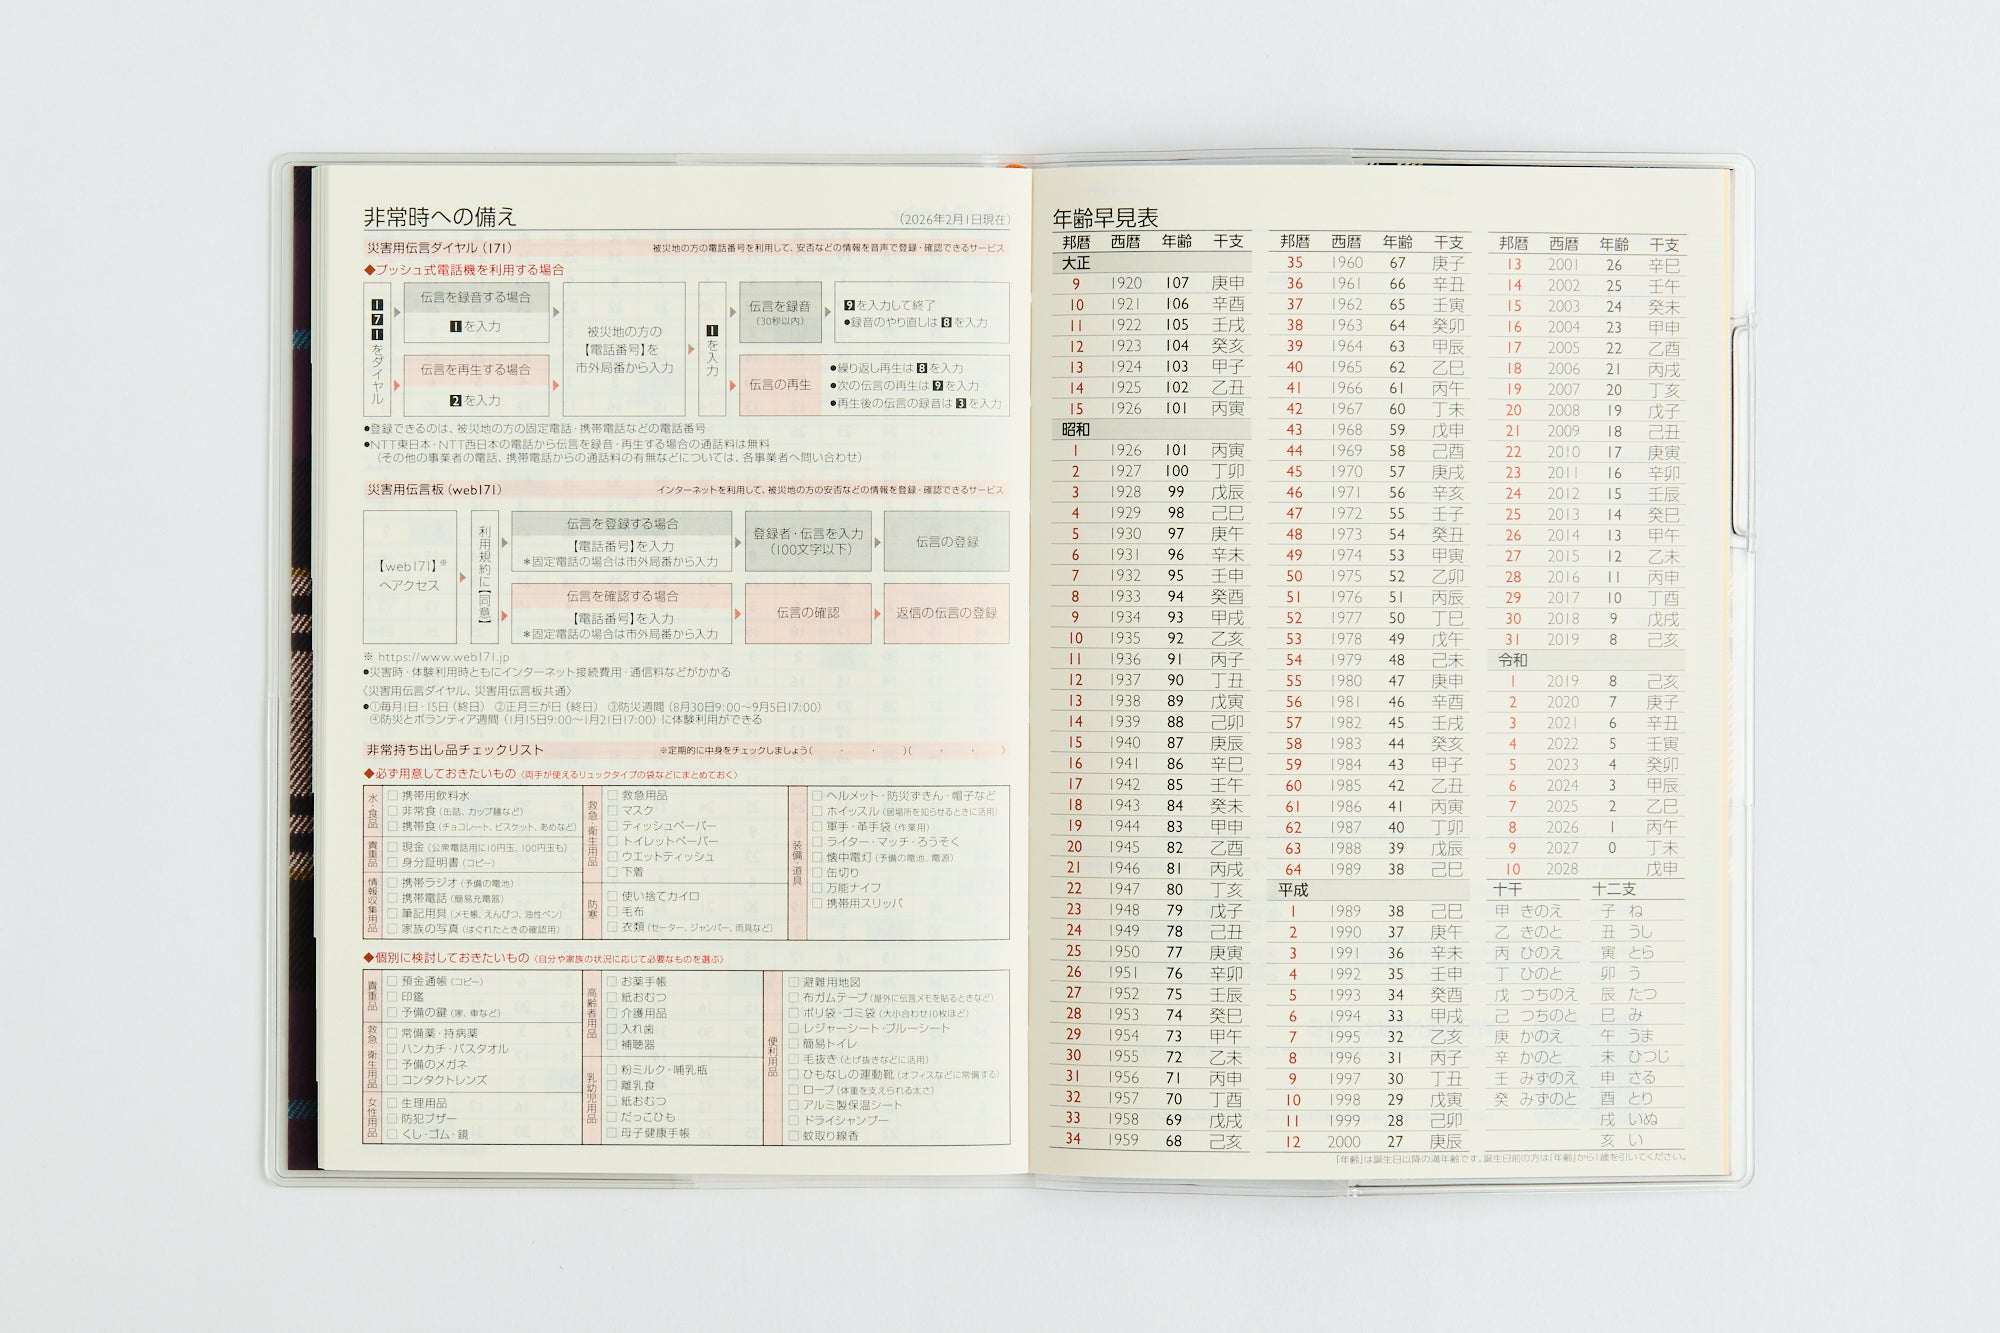 非常時への備え
（2026年2月1日現在）
災害用伝言ダイヤル（171）
被災地の方の電話番号を利用して、安否などの情報を音声で登録・確認できるサービス
◆プッシュ式電話機を利用する場合
171をダイヤル
伝言を録音する場合
1を入力
伝言を再生する場合
2を入力
被災地の方の
【電話番号】を
市外局番から入力
1を入力
伝言を録音
（30秒以内）
9を入力して終了
●録音のやり直しは8を入力
伝言の再生
●繰り返し再生は8を入力
●次の伝言の再生は9を入力
●再生後の伝言の録音は3を入力
●登録できるのは、被災地の方の固定電話・携帯電話などの電話番号
●NTT東日本・NTT西日本の電話から伝言を録音・再生する場合の通話料は無料
（その他の事業者の電話、携帯電話からの通話料の有無などについては、各事業者へ問い合わせ）
災害用伝言板（web171）
インターネットを利用して、被災地の方の安否などの情報を登録・確認できるサービス
【web171】※
へアクセス
利用規約に【同意】
伝言を登録する場合
【電話番号】を入力
＊固定電話の場合は市外局番から入力
登録者・伝言を入力
（100文字以下）
伝言の登録
伝言を確認する場合
【電話番号】を入力
＊固定電話の場合は市外局番から入力
伝言の確認
返信の伝言の登録
※ https://www.web171.jp
●災害時・体験利用時ともにインターネット接続費用・通信料などがかかる
〈災害用伝言ダイヤル、災害用伝言板共通〉
●①毎月1日・15日（終日） ②正月三が日（終日） ③防災週間（8月30日9:00～9月5日17:00）
④防災とボランティア週間（1月15日9:00～1月21日17:00）に体験利用ができる
非常持ち出し品チェックリスト
※定期的に中身をチェックしましょう（　・　・　）（　・　・　）
◆必ず用意しておきたいもの〈両手が使えるリュックタイプの袋などにまとめておく〉
水・食品
□携帯用飲料水
□非常食（缶詰、カップ麺など）
□携帯食（チョコレート、ビスケット、あめなど）
貴重品
□現金（公衆電話用に10円玉、100円玉も）
□身分証明書（コピー）
情報収集用品
□携帯ラジオ（予備の電池）
□携帯電話（簡易充電器）
□筆記用具（メモ帳、えんぴつ、油性ペン）
□家族の写真（はぐれたときの確認用）
救急・衛生用品
□救急用品
□マスク
□ティッシュペーパー
□トイレットペーパー
□ウエットティッシュ
□下着
防寒
□使い捨てカイロ
□毛布
□衣類（セーター、ジャンパー、雨具など）
装備・道具
□ヘルメット・防災ずきん・帽子など
□ホイッスル（居場所を知らせるときに活用）
□軍手・革手袋（作業用）
□ライター・マッチ・ろうそく
□懐中電灯（予備の電池、電源）
□缶切り
□万能ナイフ
□携帯用スリッパ
◆個別に検討しておきたいもの〈自分や家族の状況に応じて必要なものを選ぶ〉
貴重品
□預金通帳（コピー）
□印鑑
□予備の鍵（家、車など）
救急・衛生用品
□常備薬・持病薬
□ハンカチ・バスタオル
□予備のメガネ
□コンタクトレンズ
女性用品
□生理用品
□防犯ブザー
□くし・ゴム・鏡
高齢者用品
□お薬手帳
□紙おむつ
□介護用品
□入れ歯
□補聴器
乳幼児用品
□粉ミルク・哺乳瓶
□離乳食
□紙おむつ
□だっこひも
□母子健康手帳
便利用品
□避難用地図
□布ガムテープ（屋外に伝言メモを貼るときなど）
□ポリ袋・ゴミ袋（大小合わせ10枚ほど）
□レジャーシート・ブルーシート
□簡易トイレ
□毛抜き（とげ抜きなどに活用）
□ひもなしの運動靴（オフィスなどに常備する）
□ロープ（体重を支えられる太さ）
□アルミ製保温シート
□ドライシャンプー
□蚊取り線香
年齢早見表
邦暦 西暦 年齢 干支
大正
9 1920 107 庚申
10 1921 106 辛酉
11 1922 105 壬戌
12 1923 104 癸亥
13 1924 103 甲子
14 1925 102 乙丑
15 1926 101 丙寅
昭和
1 1926 101 丙寅
2 1927 100 丁卯
3 1928 99 戊辰
4 1929 98 己巳
5 1930 97 庚午
6 1931 96 辛未
7 1932 95 壬申
8 1933 94 癸酉
9 1934 93 甲戌
10 1935 92 乙亥
11 1936 91 丙子
12 1937 90 丁丑
13 1938 89 戊寅
14 1939 88 己卯
15 1940 87 庚辰
16 1941 86 辛巳
17 1942 85 壬午
18 1943 84 癸未
19 1944 83 甲申
20 1945 82 乙酉
21 1946 81 丙戌
22 1947 80 丁亥
23 1948 79 戊子
24 1949 78 己丑
25 1950 77 庚寅
26 1951 76 辛卯
27 1952 75 壬辰
28 1953 74 癸巳
29 1954 73 甲午
30 1955 72 乙未
31 1956 71 丙申
32 1957 70 丁酉
33 1958 69 戊戌
34 1959 68 己亥
邦暦 西暦 年齢 干支
35 1960 67 庚子
36 1961 66 辛丑
37 1962 65 壬寅
38 1963 64 癸卯
39 1964 63 甲辰
40 1965 62 乙巳
41 1966 61 丙午
42 1967 60 丁未
43 1968 59 戊申
44 1969 58 己酉
45 1970 57 庚戌
46 1971 56 辛亥
47 1972 55 壬子
48 1973 54 癸丑
49 1974 53 甲寅
50 1975 52 乙卯
51 1976 51 丙辰
52 1977 50 丁巳
53 1978 49 戊午
54 1979 48 己未
55 1980 47 庚申
56 1981 46 辛酉
57 1982 45 壬戌
58 1983 44 癸亥
59 1984 43 甲子
60 1985 42 乙丑
61 1986 41 丙寅
62 1987 40 丁卯
63 1988 39 戊辰
64 1989 38 己巳
平成
1 1989 38 己巳
2 1990 37 庚午
3 1991 36 辛未
4 1992 35 壬申
5 1993 34 癸酉
6 1994 33 甲戌
7 1995 32 乙亥
8 1996 31 丙子
9 1997 30 丁丑
10 1998 29 戊寅
11 1999 28 己卯
12 2000 27 庚辰
邦暦 西暦 年齢 干支
13 2001 26 辛巳
14 2002 25 壬午
15 2003 24 癸未
16 2004 23 甲申
17 2005 22 乙酉
18 2006 21 丙戌
19 2007 20 丁亥
20 2008 19 戊子
21 2009 18 己丑
22 2010 17 庚寅
23 2011 16 辛卯
24 2012 15 壬辰
25 2013 14 癸巳
26 2014 13 甲午
27 2015 12 乙未
28 2016 11 丙申
29 2017 10 丁酉
30 2018 9 戊戌
31 2019 8 己亥
令和
1 2019 8 己亥
2 2020 7 庚子
3 2021 6 辛丑
4 2022 5 壬寅
5 2023 4 癸卯
6 2024 3 甲辰
7 2025 2 乙巳
8 2026 1 丙午
9 2027 0 丁未
10 2028 戊申
十干 十二支
甲 きのえ 子 ね
乙 きのと 丑 うし
丙 ひのえ 寅 とら
丁 ひのと 卯 う
戊 つちのえ 辰 たつ
己 つちのと 巳 み
庚 かのえ 午 うま
辛 かのと 未 ひつじ
壬 みずのえ 申 さる
癸 みずのと 酉 とり
戌 いぬ
亥 い
「年齢」は誕生日以降の満年齢です。誕生日前の方は「年齢」から1歳を引いてください。